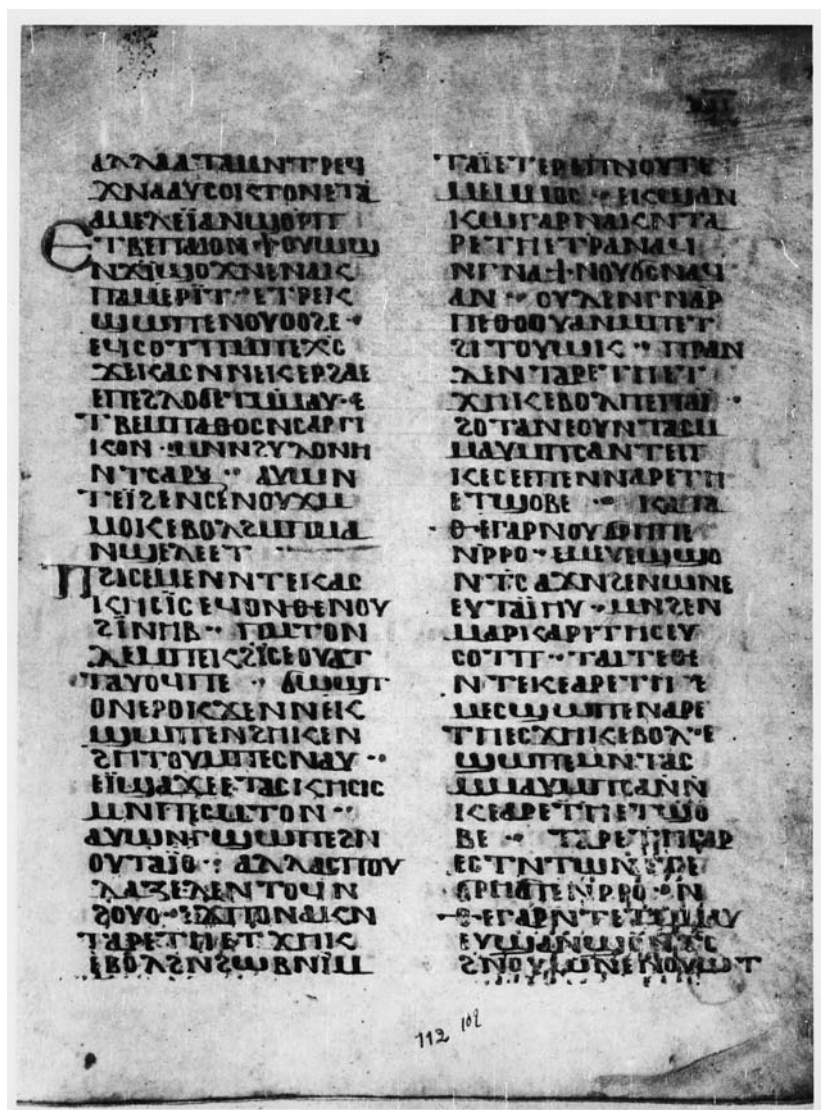 ⲁⲗⲗⲁⲧⲁⲙⲛⲧⲣⲉϥ
ϫⲛⲁⲁⲩⲥⲟⲓⲥⲧⲟⲛⲉⲧⲁ
ⲁⲙⲉⲗⲉⲓ̈ⲁⲛϣⲟⲣⲡ
ⲉⲧⲃⲉⲡⲁⲓⲟⲛϯⲟⲩⲱϣ
ⲛϫⲓϣⲟϫⲛⲉⲛⲁⲕ
ⲡⲁⲙⲉⲣⲓⲧ · ⲉⲧⲣⲉⲕ
ϣⲱⲡⲉⲛⲟⲩⲟϩⲉ ·
ⲉϥⲥⲟⲧⲡⲙⲡⲉⲭⲥ
ϫⲉⲕⲁⲥⲛⲛⲉⲕⲉⲣϩⲁⲉ
ⲉⲡⲉϩⲗⲟϭⲉⲧⲙⲙⲁⲩ · ⲉ
ⲧⲃⲉⲙⲡⲁⲑⲟⲥⲛⲥⲁⲣⲕⲓ
ⲕⲟⲛ · ⲙⲛⲛϩⲩⲇⲟⲛⲏ
ⲛⲧⲥⲁⲣⲝ ·· ⲁⲩⲱⲛ
ⲧⲉⲓ̈ϩⲉⲛⲥⲉⲛⲟⲩϫⲙ
ⲙⲟⲕⲉⲃⲟⲗϩⲙⲡⲙⲁ
ⲛϣⲉⲗⲉⲉⲧ ··
ⲡϩⲓⲥⲉⲙⲉⲛⲛⲧⲉⲕⲁⲥ
ⲕⲏⲥⲓ̈ⲥⲉϥⲟⲛⲑⲉⲛⲟⲩ
ϩⲓ̈ⲛⲏⲃ ·· ⲡⲙⲧⲟⲛ
ⲇⲉⲙⲡⲉⲕϩⲓ̈ⲥⲉⲟⲩⲁⲧ
ⲧⲁⲩⲟϥⲡⲉ ·· ϭⲱϣⲧ
ⲟⲛⲉⲣⲟⲕϫⲉⲛⲛⲉⲕ
ϣⲱⲡⲉⲛϩⲏⲕⲉⲛ
ϩⲏⲧⲟⲩⲙⲡⲉⲥⲛⲁⲩ ··
ⲉⲓ̈ϣⲁϫⲉⲉⲧⲁⲥⲕⲏⲥⲓⲥ
ⲙⲛⲡⲉⲥⲙⲧⲟⲛ ··
ⲁⲩⲱⲛⲅϣⲱⲡⲉϩⲛ
ⲟⲩⲧⲁⲓ̈ⲟ · ⲁⲗⲗⲁⲥⲡⲟⲩ
ⲇⲁⲍⲉⲇⲉⲛⲧⲟϥⲛ
ϩⲟⲩⲟ · ⲉϫⲡⲟⲛⲁⲕⲛ
ⲧⲁⲣⲉⲧⲏⲉⲧϫⲏⲕ
ⲉⲃⲟⲗϩⲛϩⲱⲃⲛⲓⲙ
ⲧⲁⲓ̈ⲉⲧⲉⲣⲉⲡⲛⲟⲩⲧⲉ
ⲙⲉⲙⲙⲟⲥ ·· ⲉⲕϣⲁⲛ
ⲕⲱⲅⲁⲣⲛⲁⲕⲛⲧⲁ
ⲣⲉⲧⲏⲉⲧⲣⲁⲛⲁϥ
ⲛⲅⲛⲁϯⲛⲟⲩϭⲥⲛⲁϥ
ⲁⲛ ·· ⲟⲩⲇⲉⲛⲅⲛⲁⲣ
ⲡⲉⲑⲟⲟⲩⲁⲛⲙⲡⲉⲧ
ϩⲓⲧⲟⲩⲱⲕ ·· ⲡⲣⲁⲛ
ⲇⲉⲛⲧⲁⲣⲉⲧⲏⲉⲧ
ϫⲏⲕⲉⲃⲟⲗⲡⲉⲡⲁⲓ̈ ··
ϩⲟⲧⲁⲛⲉⲟⲩⲛⲧⲁⲥⲙ
ⲙⲁⲩⲙⲡⲥⲁⲛⲧⲉⲡ
ⲕⲉⲥⲉⲉⲡⲉⲛⲛⲁⲣⲉⲧⲏ
ⲉⲧϣⲟⲃⲉ ·· ⲕⲁⲧⲁ
ⲑⲉⲅⲁⲣⲛⲟⲩϭⲣⲏⲡⲉ
ⲛⲣⲣⲟ · ⲉⲙⲉⲩⲉϣϣⲱ
ⲛⲧⲥⲁϫⲛϩⲉⲛⲱⲛⲉ
ⲉⲩⲧⲁⲓ̈ⲏⲩ · ⲙⲛϩⲉⲛ
ⲙⲁⲣⲕⲁⲣⲓⲧⲏⲥⲉⲩ
ⲥⲟⲧⲡ ·· ⲧⲁⲓⲧⲉⲑⲉ
ⲛⲧⲉⲕⲉⲁⲣⲉⲧⲏ · ⲉ
ⲙⲉⲥϣⲱⲡⲉⲛⲁⲣⲉ
ⲧⲏⲉⲥϫⲏⲕⲉⲃⲟⲗ · ⲉ
ϣⲱⲡⲉⲙⲛⲧⲁⲥ
ⲙⲙⲁⲩⲙⲡⲥⲁⲛⲛ
ⲕⲉⲁⲣⲉⲧⲏⲉⲧϣⲟ
ⲃⲉ ·· ⲧⲁⲣⲉⲧⲏⲅⲁⲣ
ⲉⲥⲧⲛⲧⲱⲛ
ⲛⲣⲣⲟ · ⲛ
ⲑⲉⲅⲁⲣⲛⲧⲉⲧⲙⲙⲁⲩ
ⲉⲩϣⲁⲛ
112 102